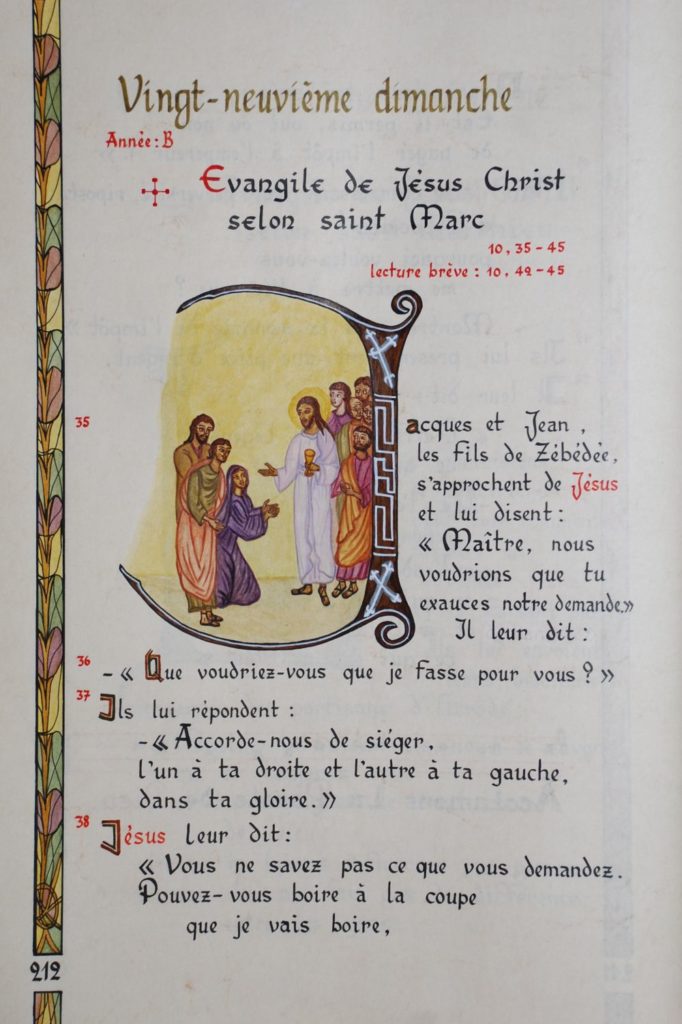 Vingt-neuvième dimanche
Année : B
Evangile de Jésus Christ
selon saint Marc
10, 35 - 45
lecture brève : 10, 42 - 45
35
Jacques et Jean,
les fils de Zébédée,
s'approchent de Jésus
et lui disent :
« Maître, nous
voudrions que tu
exauces notre demande.»
Il leur dit :
36 - « Que voudriez-vous que je fasse pour vous ? »
37 Ils lui répondent :
- « Accorde-nous de siéger,
l'un à ta droite et l'autre à ta gauche,
dans ta gloire. »
38 Jésus leur dit :
« Vous ne savez pas ce que vous demandez.
Pouvez-vous boire à la coupe
que je vais boire,
212